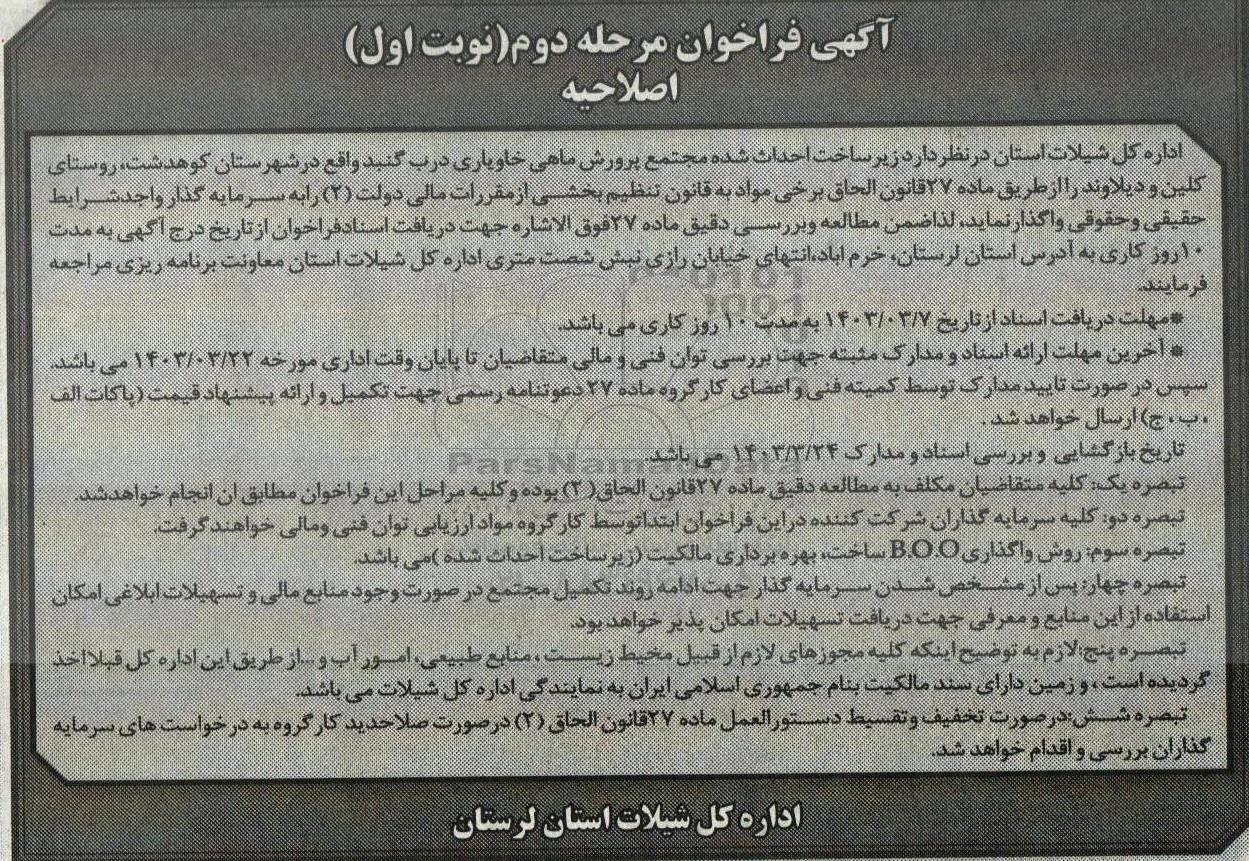 آگهی فراخوان مرحله دوم(نوبت اول)
اصلاحیه
اداره کل شیلات استان در نظر دارد زیرساخت احداث شده مجتمع پرورش ماهی خاویاری درب گنبد واقع در شهرستان کوهدشت، روستای
کلین و دیلاوند را از طریق ماده ۲۷قانون الحاق برخی مواد به قانون تنظیم بخشی از مقررات مالی دولت (۲) رابه سرمایه گذار واجدشرایط
حقیقی وحقوقی واگذار نماید، لذا ضمن مطالعه وبررسی دقیق ماده ۲۷فوق الاشاره جهت دریافت اسنادفراخوان از تاریخ درج آگهی به مدت
۱۰روز کاری به آدرس استان لرستان، خرم اباد،انتهای خیابان رازی نبش شصت متری اداره کل شیلات استان معاونت برنامه ریزی مراجعه
فرمایند.
*مهلت دریافت اسناد از تاریخ ۱۴۰۳/۰۳/۷ به مدت ۱۰ روز کاری می باشد.
* آخرین مهلت ارائه اسناد و مدارک مثبته جهت بررسی توان فنی و مالی متقاضیان تا پایان وقت اداری مورخه ۱۴۰۳/۰۳/۲۲ می باشد.
سپس در صورت تایید مدارک توسط کمیته فنی و اعضای کارگروه ماده ۲۷ دعوتنامه رسمی جهت تکمیل و ارائه پیشنهاد قیمت (پاکات الف
، ب ، ج) ارسال خواهد شد .
تاریخ بازگشایی و بررسی اسناد و مدارک ۱۴۰۳/۳/۲۴ می باشد.
تبصره یک: کلیه متقاضیان مکلف به مطالعه دقیق ماده ۲۷قانون الحاق(۲) بوده وکلیه مراحل این فراخوان مطابق ان انجام خواهدشد.
تبصره دو: کلیه سرمایه گذاران شرکت کننده دراین فراخوان ابتداتوسط کارگروه مواد ارزیابی توان فنی ومالی خواهند گرفت.
تبصره سوم: روش واگذاری B.O.O ساخت، بهره برداری مالکیت (زیرساخت احداث شده )می باشد.
تبصره چهار: پس از مشخص شدن سرمایه گذار جهت ادامه روند تکمیل مجتمع در صورت وجود منابع مالی و تسهیلات ابلاغی امکان
استفاده از این منابع و معرفی جهت دریافت تسهیلات امکان پذیر خواهد بود.
تبصره پنج:لازم به توضیح اینکه کلیه مجوزهای لازم از قبیل محیط زیست ، منابع طبیعی، امور آب و ...از طریق این اداره کل قبلا اخذ
گردیده است ، و زمین دارای سند مالکیت بنام جمهوری اسلامی ایران به نمایندگی اداره کل شیلات می باشد.
تبصره شش:درصورت تخفیف وتقسیط دستورالعمل ماده ۲۷قانون الحاق (۲) درصورت صلاحدید کارگروه به درخواست های سرمایه
گذاران بررسی و اقدام خواهد شد.
اداره کل شیلات استان لرستان
ParsNamadData